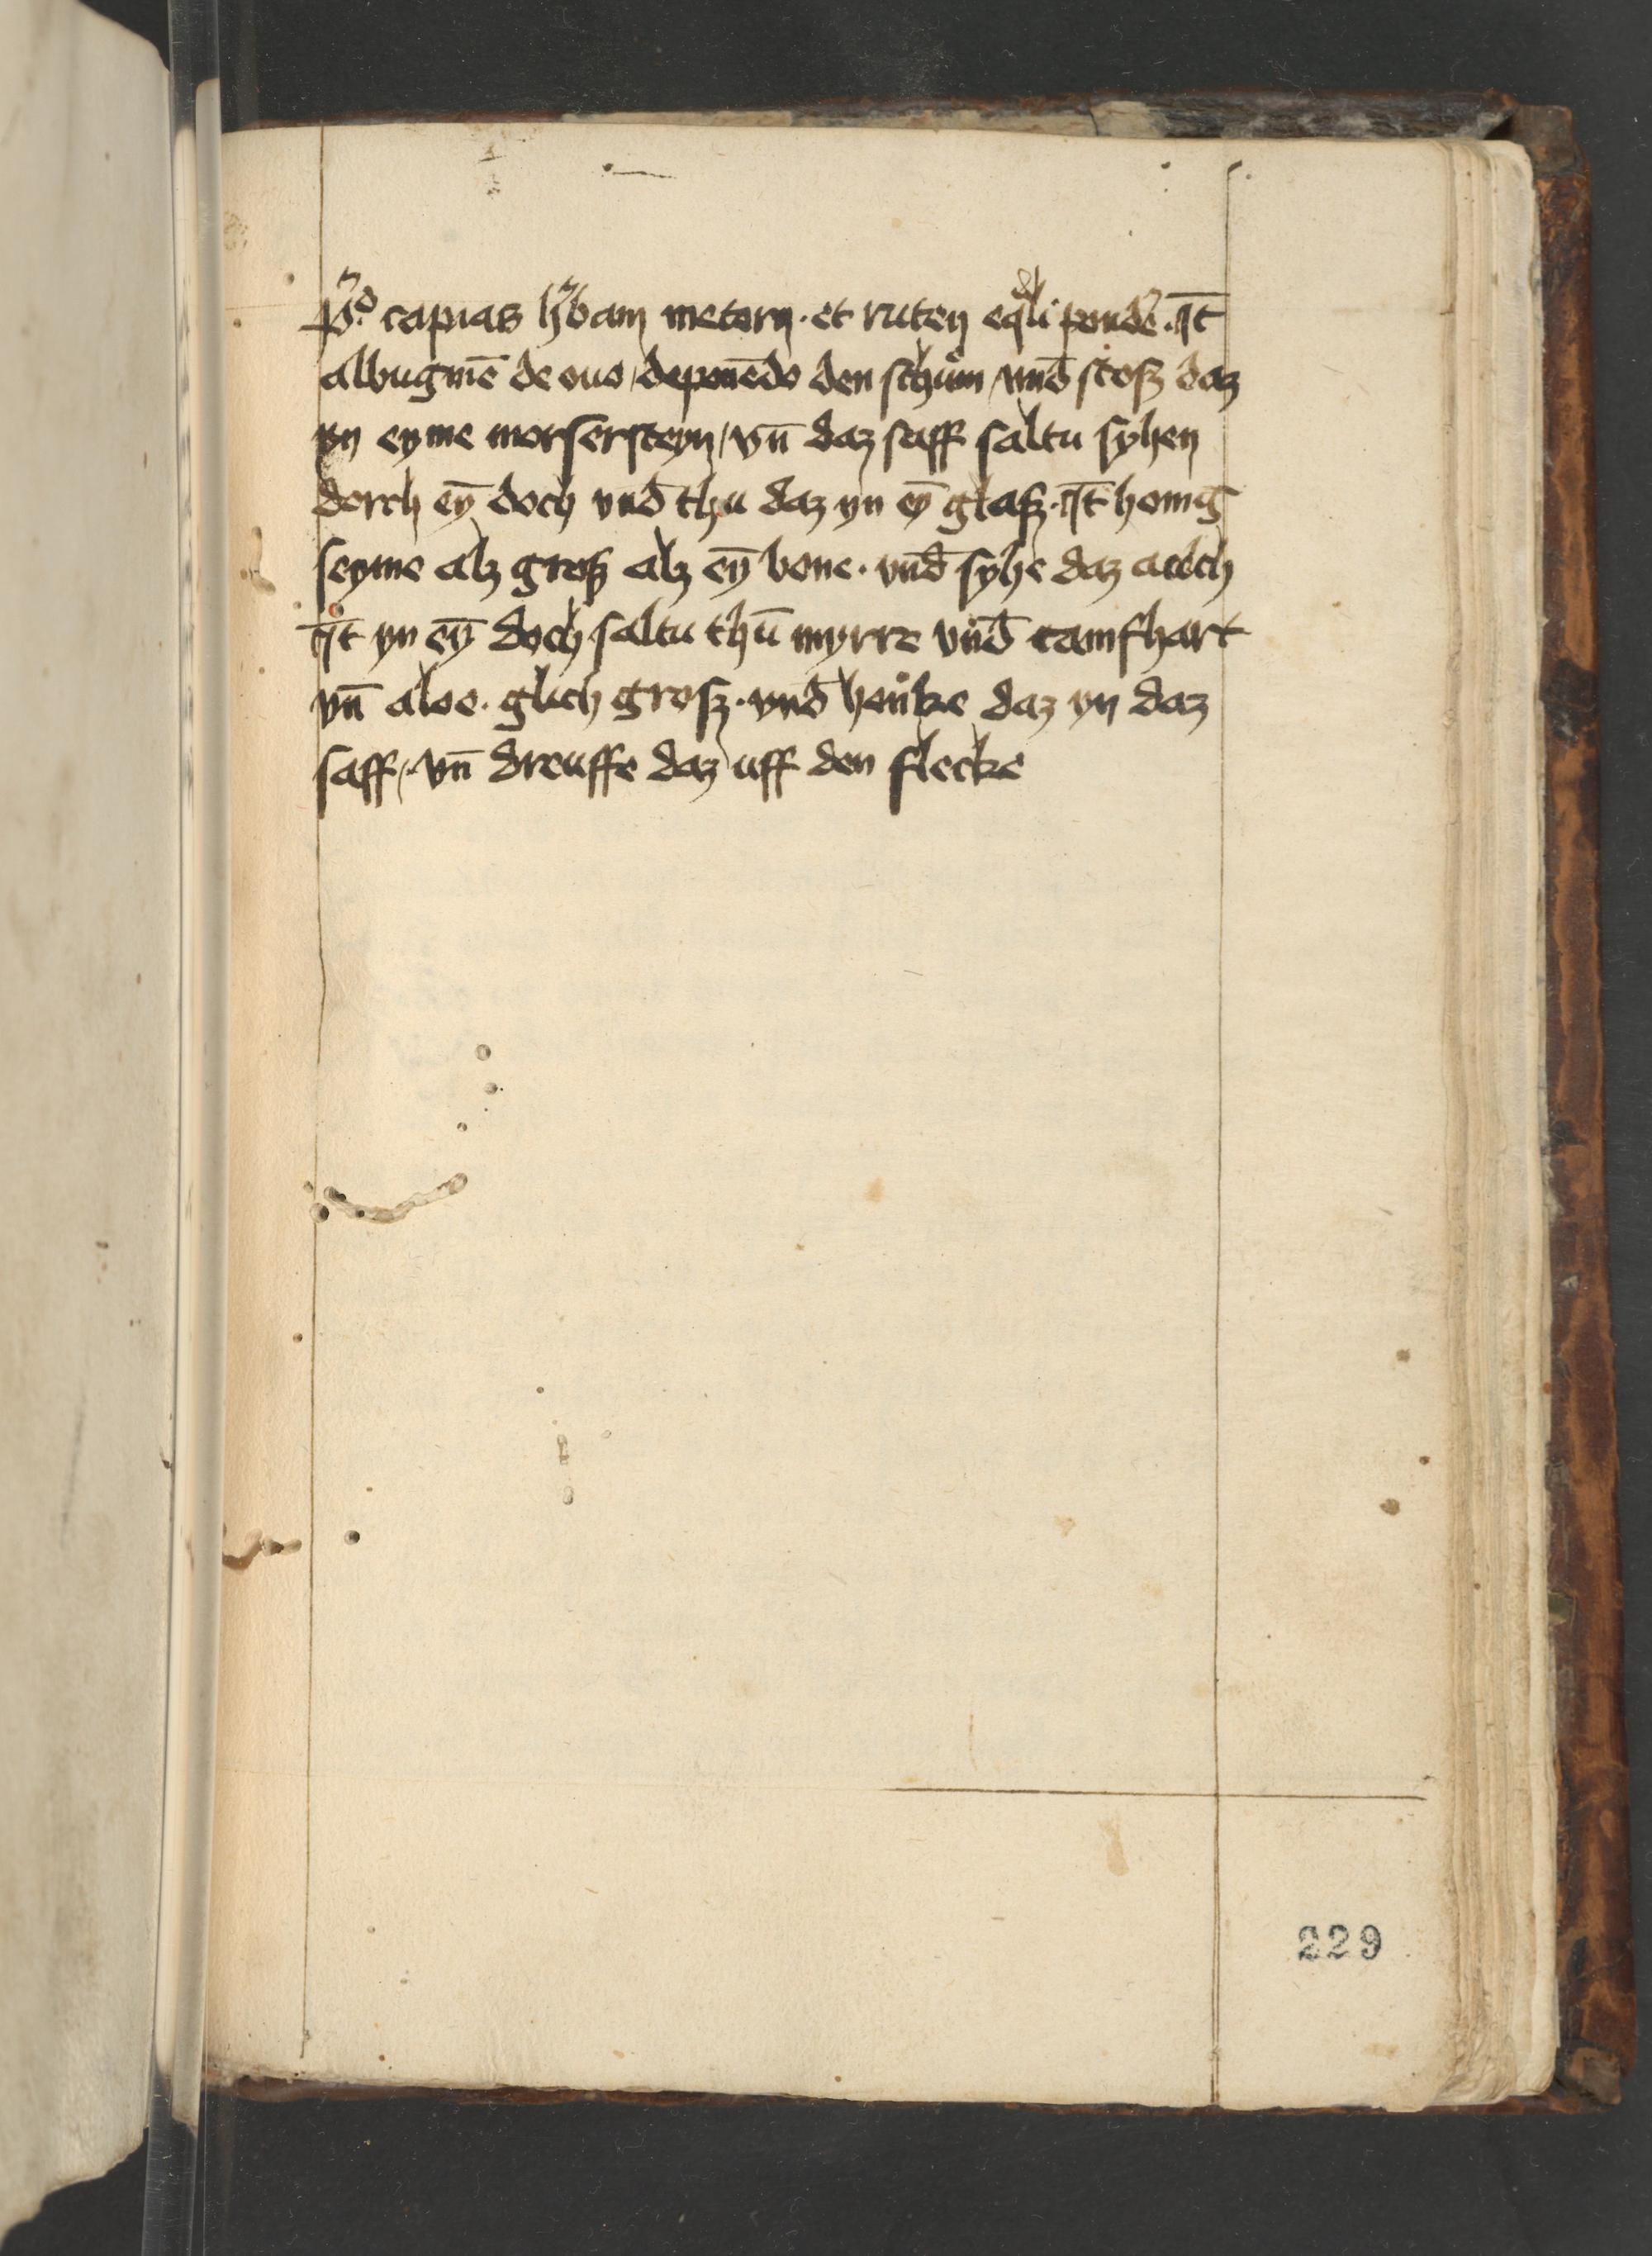 capias h'bam metern · et ruten eq͛li pondē · Jt̄
albuginē de ouo / deponēdo den schům / vnd̄ stosz daz
yn eyme morsersteyn / vn̄ daz saff saltu syhen
dorch eȳ doch vnd̄ thu daz yn eȳ glasz · Jt̄ honig
seyme alz grosz alz eȳ bone · vnd̄ syhe daz auch
Jt̄ yn eȳ doch saltu thū myrre vnd̄ camfhart
vn̄ aloe · glich grosz · vnd̄ henke daz yn daz
saff / · vn̄ dreuffe daz uff den flecke
229